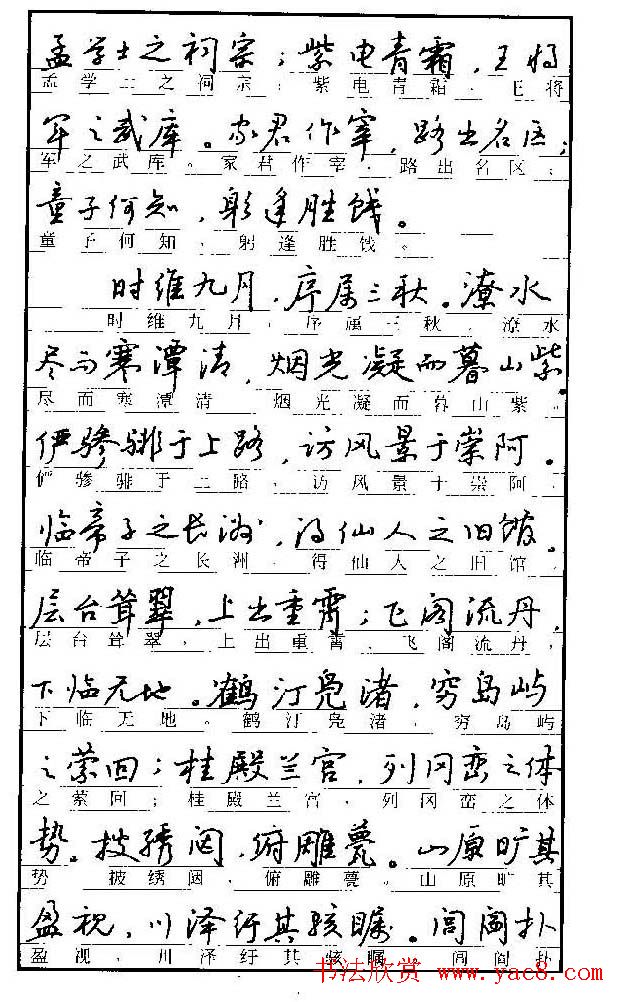 孟学士之词宗；紫电青霜，王将
孟学士之词宗；紫电青霜，王将
军之武库。家君作宰，路出名区；
军之武库。家君作宰，路出名区；
童子何知，躬逢胜饯。
童子何知，躬逢胜饯。
时维九月，序属三秋。潦水
时维九月，序属三秋，潦水
尽而寒潭清，烟光凝而暮山紫。
尽而寒潭清 烟光凝而暮山紫。
俨骖騑于上路，访风景于崇阿。
俨骖騑于上路，访风景于崇阿，
临帝子之长洲，得仙人之旧馆。
临帝子之长洲，得仙人之旧馆，
层台耸翠，上出重霄；飞阁流丹，
层台耸翠，上出重霄，飞阁流丹，
下临无地。鹤汀凫渚，穷岛屿
下临无地。鹤汀凫渚，穷岛屿
之萦回；桂殿兰宫，列冈峦之体
之萦回；桂殿兰宫，列冈峦之体
势。披绣闼，俯雕甍。山原旷其
势 披绣闼，俯雕甍。山原旷其
盈视，川泽纡其骇瞩。闾阎扑
盈视，川泽纡其骇瞩 闾阎扑
书法欣赏 www.yac8.com